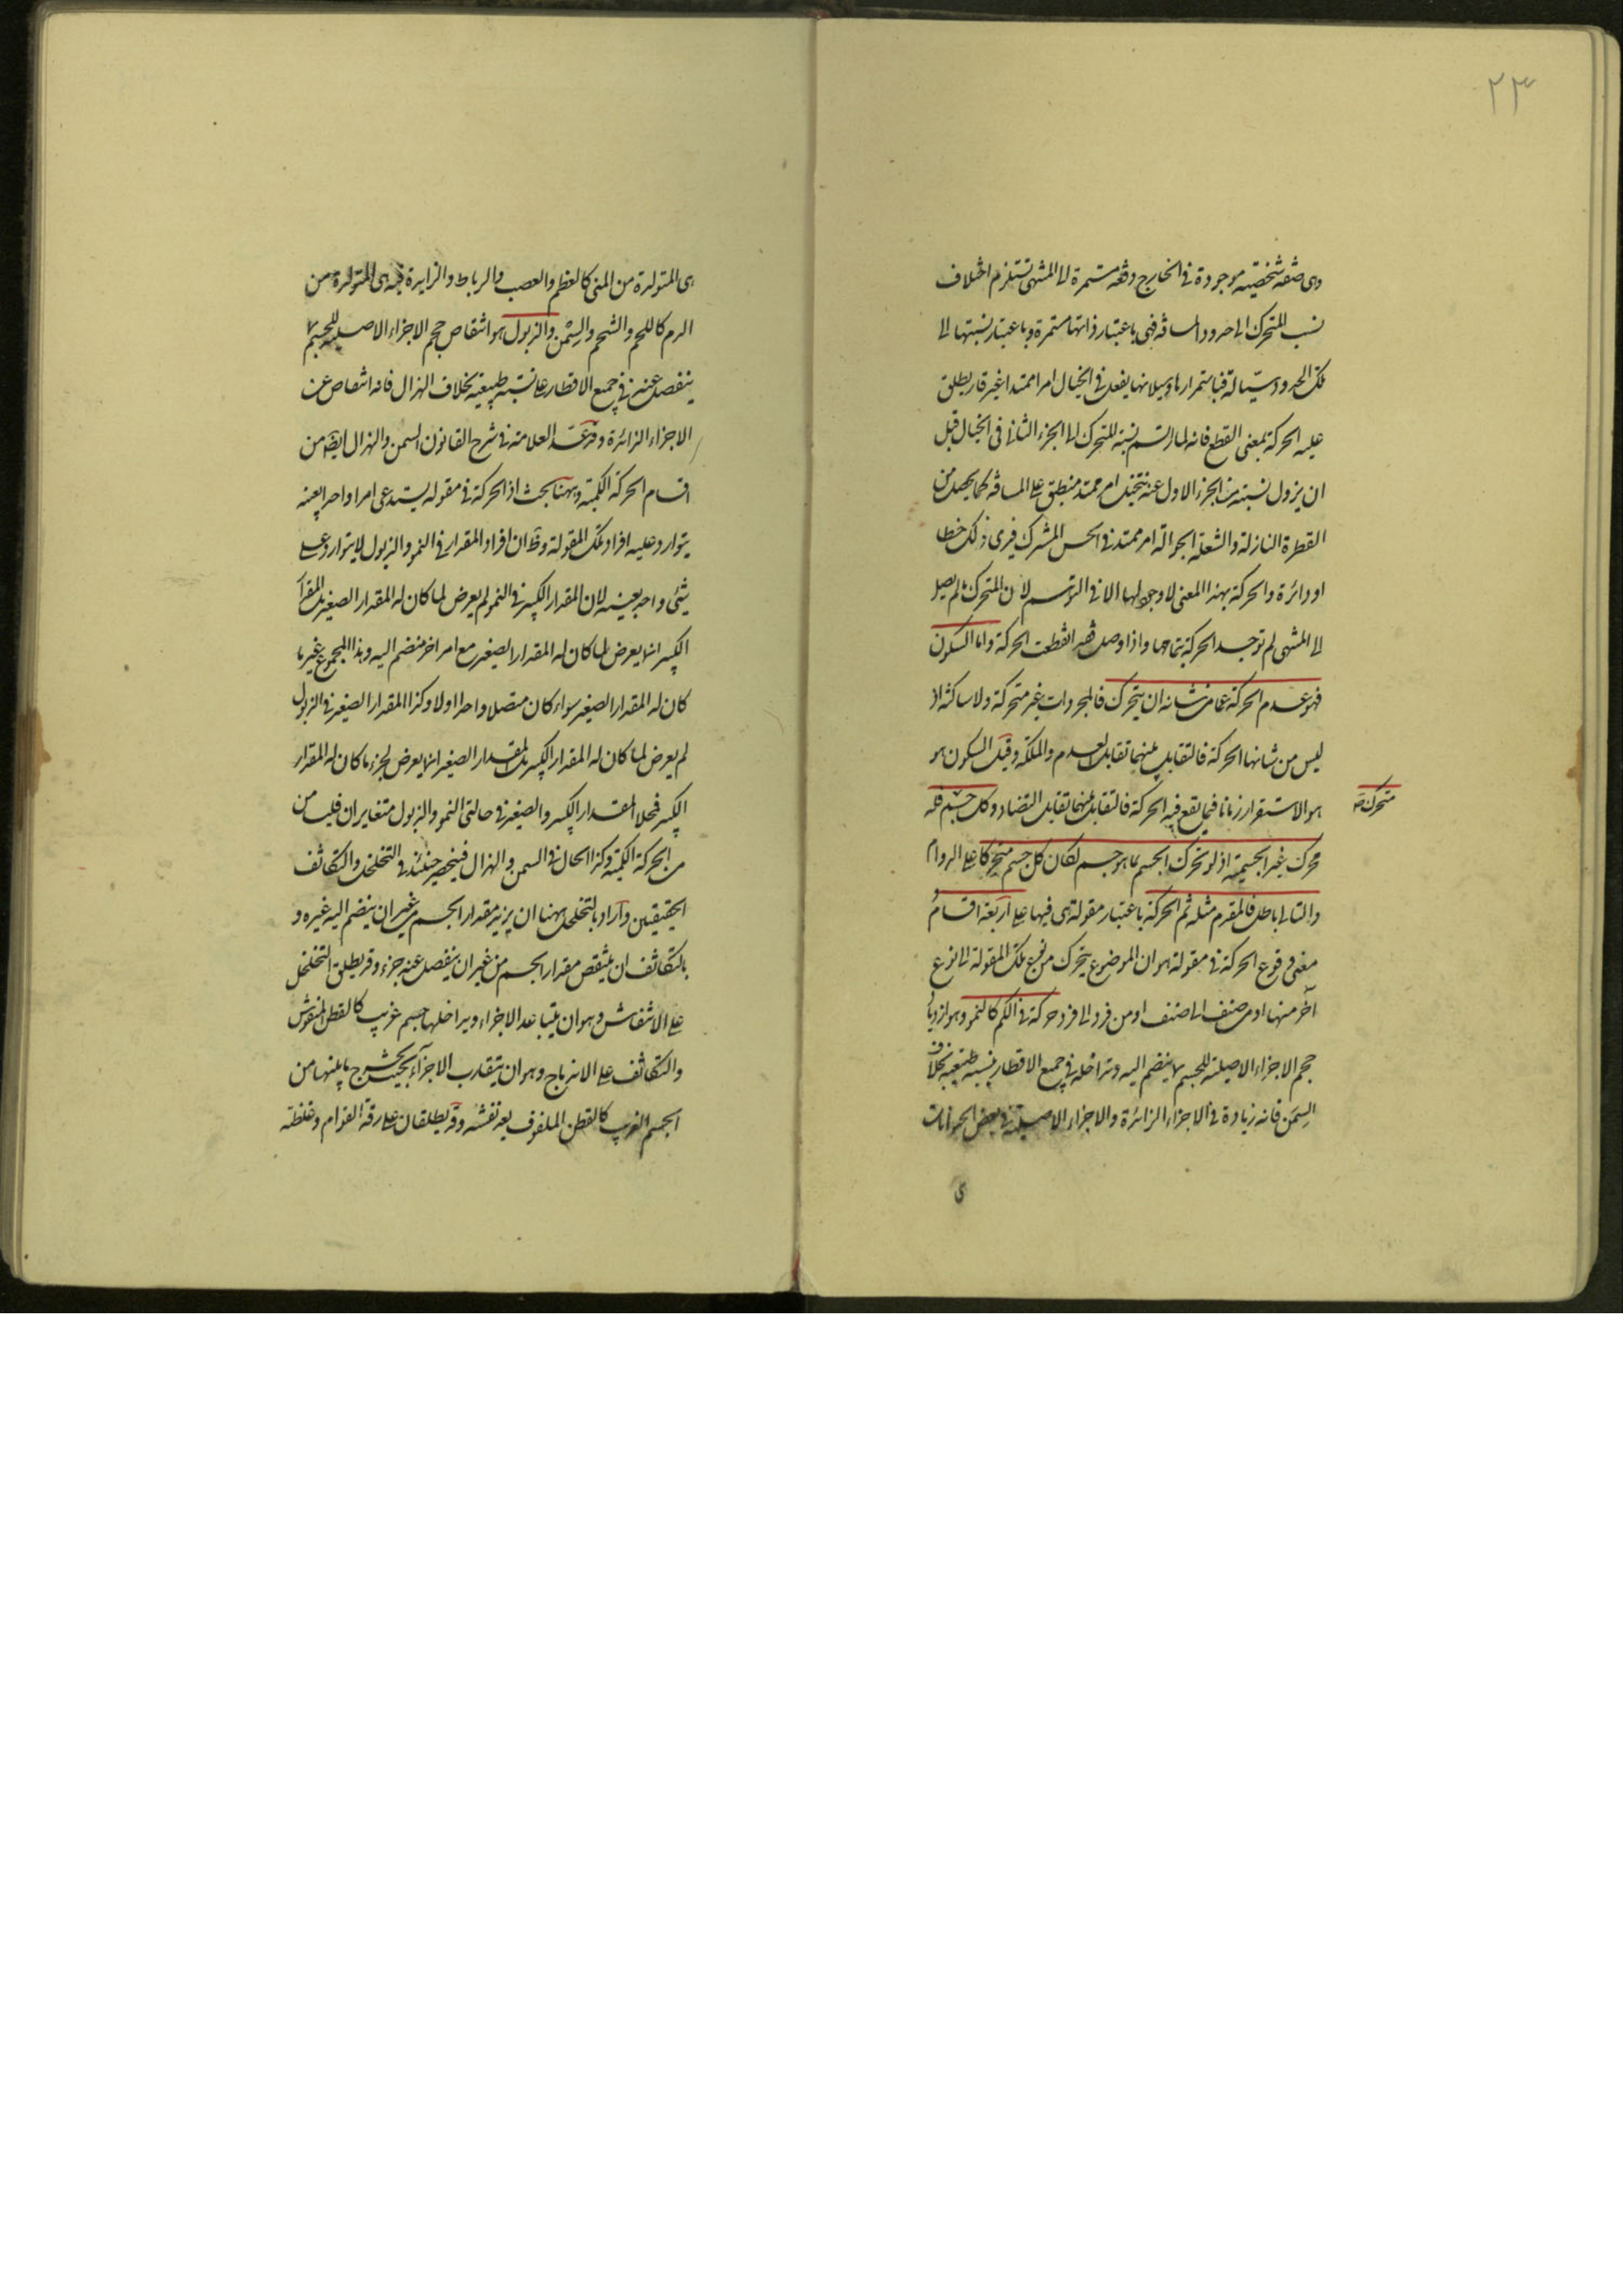 ٢٣
وهى صفة شخصية موجودة فى الخارج دفعة مستمرة الى المنتهى تستلزم اختلاف
نسب المتحرك الى حدود المسافة فهى باعتبار ذاتها مستمرة وباعتبار نسبتها الى
تلك الحدود سيالة فباستمرارها وسيلانها يفعل فى الخيال امرا ممتدا غير قار يطلق
عليه الحركة بمعنى القطع فانه لما ارتسم نسبة المتحرك الى الجزء الثانى فى الخيال قبل
ان يزول نسبته من الجزء الاول عنه يتخيل امر ممتد منطبق على المسافة كما يحصل من
القطرة النازلة والشعلة الجوالة امر ممتد فى الحس المشترك فيرى ذلك خطا
او دائرة والحركة بهذا المعنى لا وجود لها الا فى التوهم لان المتحرك ما لم يصل
الى المنتهى لم توجد الحركة بتمامها واذا وصل فقد انقطعت الحركة واما السكون
فهو عدم الحركة عما من شانه ان يتحرك فالمجردات غير متحركة ولا ساكنة اذ
ليس من شانها الحركة فالتقابل بينهما تقابل العدم والملكة وقيل السكون هو
هو الاستقرار زمانا فيما يقع فيه الحركة فالتقابل بينهما تقابل التضاد وكل جسم فله
متحرك صح
محرك غير الجسمية اذ لو تحرك الجسم بما هو جسم لكان كل جسم متحركا على الدوام
والتالى باطل فالمقدم مثله ثم الحركة باعتبار مقولة هى فيها على اربعة اقسام
معنى وقوع الحركة فى مقولة هو ان الموضوع يتحرك من نوع تلك المقولة الى نوع
آخر منها او من صنف الى صنف او من فرد الى فرد حركة فى الكم كالنمو وهو ازدياد
حجم الاجزاء الاصلية للجسم بما ينضم اليه وتداخله فى جميع الاقطار بنسبة طبيعية بخلاف
السمن فانه زيادة فى الاجزاء الزائدة والاجزاء الاصلية فى بعض الحيوانات
هى
هى المتولدة من المنى كالعظم والعصب والرباط والزايدة فيه هى المتولدة من
الدم كاللحم والشحم والسمن والذبول هو انتقاص حجم الاجزاء الاصلية للجسم بما
ينفصل عنه فى جميع الاقطار على نسبة طبيعية بخلاف الهزال فانه انتقاص عن
الاجزاء الزائدة وقد عد العلامة فى شرح القانون السمن والهزال ايضا من
اقسام الحركة الكمية وههنا بحث اذ الحركة فى مقولة يستدعى امرا واحدا بعينه
يتوارد عليه افراد تلك المقولة وظ ان افراد المقدار فى النمو والذبول لا يتوارد على
شئ واحد بعينه لان المقدار الكبير فى النمو لم يعرض لما كان له المقدار الصغير بل المقدار
الكبير انما يعرض لما كان له المقدار الصغير مع امر اخر منضم اليه وهذا المجموع غير ما
كان له المقدار الصغير سواء كان متصلا واحدا اولا وكذا المقدار الصغير فى الذبول
لم يعرض لما كان له المقدار الكبير بل المقدار الصغير انما يعرض لجزء ما كان له المقدار
الكبير فمحلا المقدار الكبير والصغير فى حالتى النمو والذبول متغايران فليسا من
من الحركة الكمية وكذا الحال فى السمن والهزال فينحصر حينئذ فى التخلخل والتكاثف
الحقيقيين واراد بالتخلخل ههنا ان يزيد مقدار الجسم من غير ان ينضم اليه غيره و
بالتكاثف ان ينتقص مقدار الجسم من غير ان ينفصل عنه جزء وقد يطلق التخلخل
على الانتفاش وهو ان يتباعد الاجزاء ويداخلها جسم غريب كالقطن المنفوش
والتكاثف على الاندماج وهو ان يتقارب الاجزاء بحيث يخرج ما بينها من
الجسم الغريب كالقطن الملفوف بعد نفشه وقد يطلقان على رقة القوام وغلظه